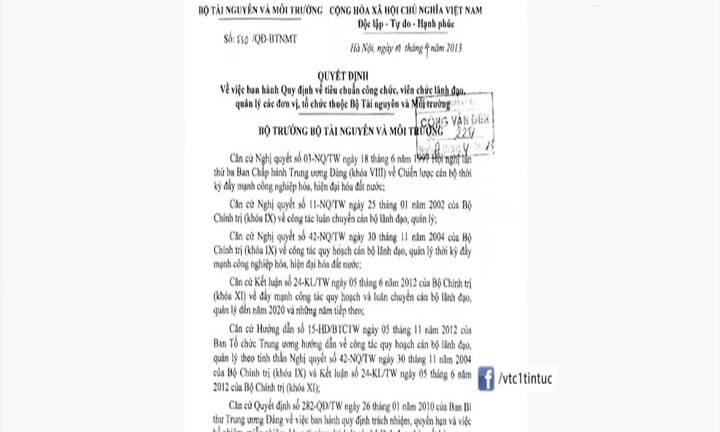 BỘ TÀI NGUYÊN VÀ MÔI TRƯỜNG CỘNG HÒA XÃ HỘI CHỦ NGHĨA VIỆT NAM
Độc lập - Tự do - Hạnh phúc
Số: 550 /QĐ-BTNMT
Hà Nội, ngày 10 tháng 4 năm 2013
QUYẾT ĐỊNH
Về việc ban hành Quy định về tiêu chuẩn công chức, viên chức lãnh đạo,
quản lý các đơn vị, tổ chức thuộc Bộ Tài nguyên và Môi trường
CÔNG VĂN ĐẾN
BỘ TRƯỞNG BỘ TÀI NGUYÊN VÀ MÔI TRƯỜNG
Căn cứ Nghị quyết số 03-NQ/TW ngày 18 tháng 6 năm 1997 Hội nghị lần
thứ ba Ban Chấp hành Trung ương Đảng (khóa VIII) về Chiến lược cán bộ thời
kỳ đẩy mạnh công nghiệp hóa, hiện đại hóa đất nước;
Căn cứ Nghị quyết số 11-NQ/TW ngày 25 tháng 01 năm 2002 của Bộ
Chính trị (khóa IX) về công tác luân chuyển cán bộ lãnh đạo, quản lý;
Căn cứ Nghị quyết số 42-NQ/TW ngày 30 tháng 11 năm 2004 của Bộ
Chính trị (khóa IX) về công tác quy hoạch cán bộ lãnh đạo, quản lý thời kỳ đẩy
mạnh công nghiệp hóa, hiện đại hóa đất nước;
Căn cứ Kết luận số 24-KL/TW ngày 05 tháng 6 năm 2012 của Bộ Chính trị
(khóa XI) về đẩy mạnh công tác quy hoạch và luân chuyển cán bộ lãnh đạo,
quản lý đến năm 2020 và những năm tiếp theo;
Căn cứ Hướng dẫn số 15-HD/BTCTW ngày 05 tháng 11 năm 2012 của
Ban Tổ chức Trung ương hướng dẫn về công tác quy hoạch cán bộ lãnh đạo,
quản lý theo tinh thần Nghị quyết số 42-NQ/TW ngày 30 tháng 11 năm 2004
của Bộ Chính trị (khóa IX) và Kết luận số 24-KL/TW ngày 05 tháng 6 năm
2012 của Bộ Chính trị (khóa XI);
/vtc1tintuc
Căn cứ Quyết định số 282-QĐ/TW ngày 26 tháng 01 năm 2010 của Ban Bí
thư Trung ương Đảng về việc ban hành quy định trách nhiệm, quyền hạn và việc